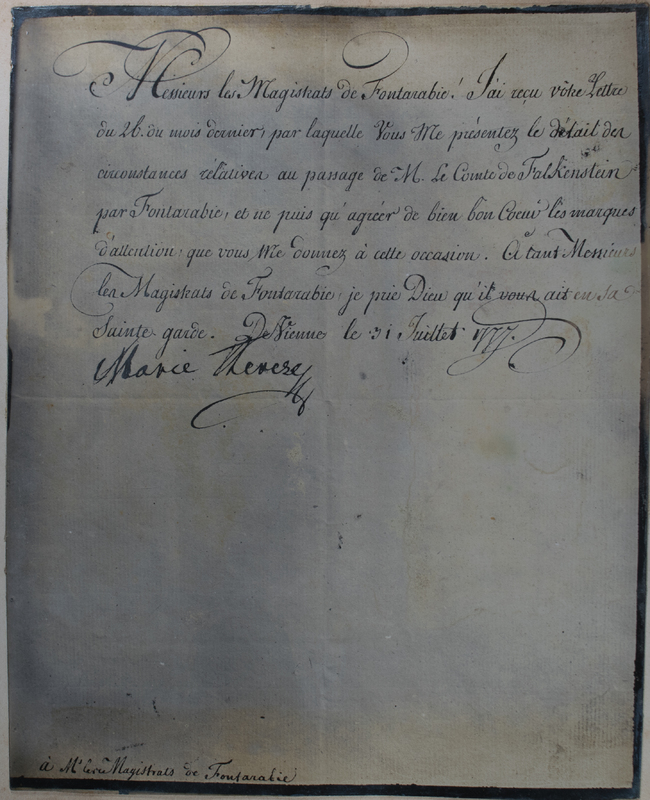 Messieurs les Magistrats de Fontarabie! J'ai reçu vôtre Lettre
du 26. du mois dernier, par laquelle Vous Me présentez le détail des
circonstances rélatives au passage de M. Le Comte de Falkenstein
par Fontarabie, et ne puis qu'agréer de bien bon Coeur les marques
d'attention, que vous Me donnez à cette occasion. A tant Messieurs
les Magistrats de Fontarabie, je prie Dieu qu'il vous ait en sa
Sainte garde. De Vienne le 31 Juillet 1777.
Marie Therese
à Mrs les Magistrats de Fontarabie